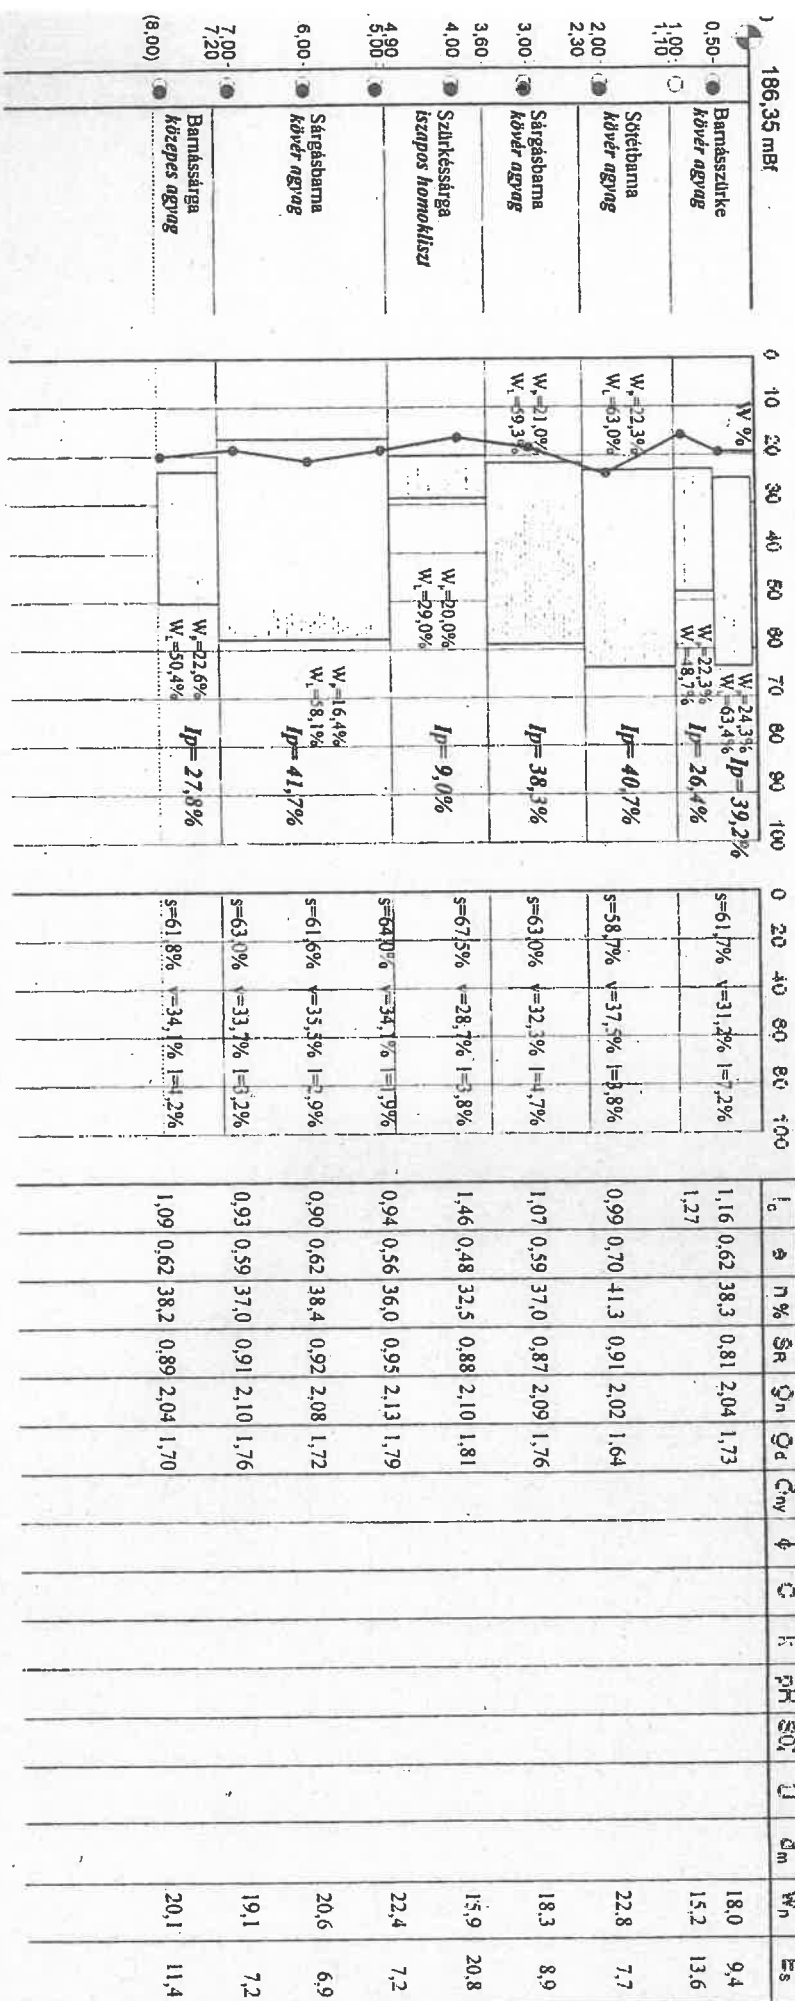 186,35 mBf
0,50
1,00
1,10
2,00
2,30
3,00
3,60
4,00
4,90
5,00
6,00
7,00
7,20
(8,00)
Barnásszürke
kövér agyag
Sötétbarna
kövér agyag
Sárgásbarna
kövér agyag
Szürkéssárga
iszapos homokliszt
Sárgásbarna
kövér agyag
Barnássárga
közepes agyag
0 10 20 30 40 50 60 70 80 90 100
W %
Wp=24,3%
WL=63,4%
Ip= 39,2%
Wp=22,3%
WL=48,7%
Ip= 26,4%
Wp=22,3%
WL=63,0%
Ip= 40,7%
Wp=21,0%
WL=59,3%
Ip= 38,3%
Wp=20,0%
WL=29,0%
Ip= 9,0%
Wp=16,4%
WL=58,1%
Ip= 41,7%
Wp=22,6%
WL=50,4%
Ip= 27,8%
0 20 40 60 80 100
s=61,7% v=31,2% l=7,2%
s=58,7% v=37,5% l=3,8%
s=63,0% v=32,3% l=4,7%
s=67,5% v=28,7% l=3,8%
s=64,0% v=34,1% l=1,9%
s=61,6% v=35,5% l=2,9%
s=63,0% v=33,7% l=3,2%
s=61,8% v=34,1% l=4,2%
Ic e n % SR ϱn ϱd φ C k pH SO₄ U dm Wn Es
1,16 0,62 38,3 0,81 2,04 1,73 18,0 9,4
1,27 15,2 13,6
0,99 0,70 41,3 0,91 2,02 1,64 22,8 7,7
1,07 0,59 37,0 0,87 2,09 1,76 18,3 8,9
1,46 0,48 32,5 0,88 2,10 1,81 15,9 20,8
0,94 0,56 36,0 0,95 2,13 1,79 22,4 7,2
0,90 0,62 38,4 0,92 2,08 1,72 20,6 6,9
0,93 0,59 37,0 0,91 2,10 1,76 19,1 7,2
1,09 0,62 38,2 0,89 2,04 1,70 20,1 11,4